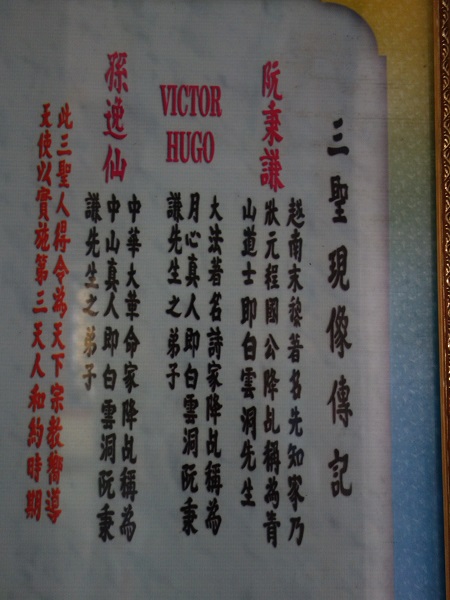 三聖現像傳記
阮秉謙
越南末黎著名先知家乃
狀元程國公降乩稱為青
山道士即白雲洞先生
VICTOR
HUGO
大法著名詩家降乩稱為
月心真人即白雲洞阮秉
謙先生之弟子
孫逸仙
中華大革命家降乩稱為
中山真人即白雲洞阮秉
謙先生之弟子
此三聖人得令為天下宗教嚮導
天使以實施第三天人和約時期